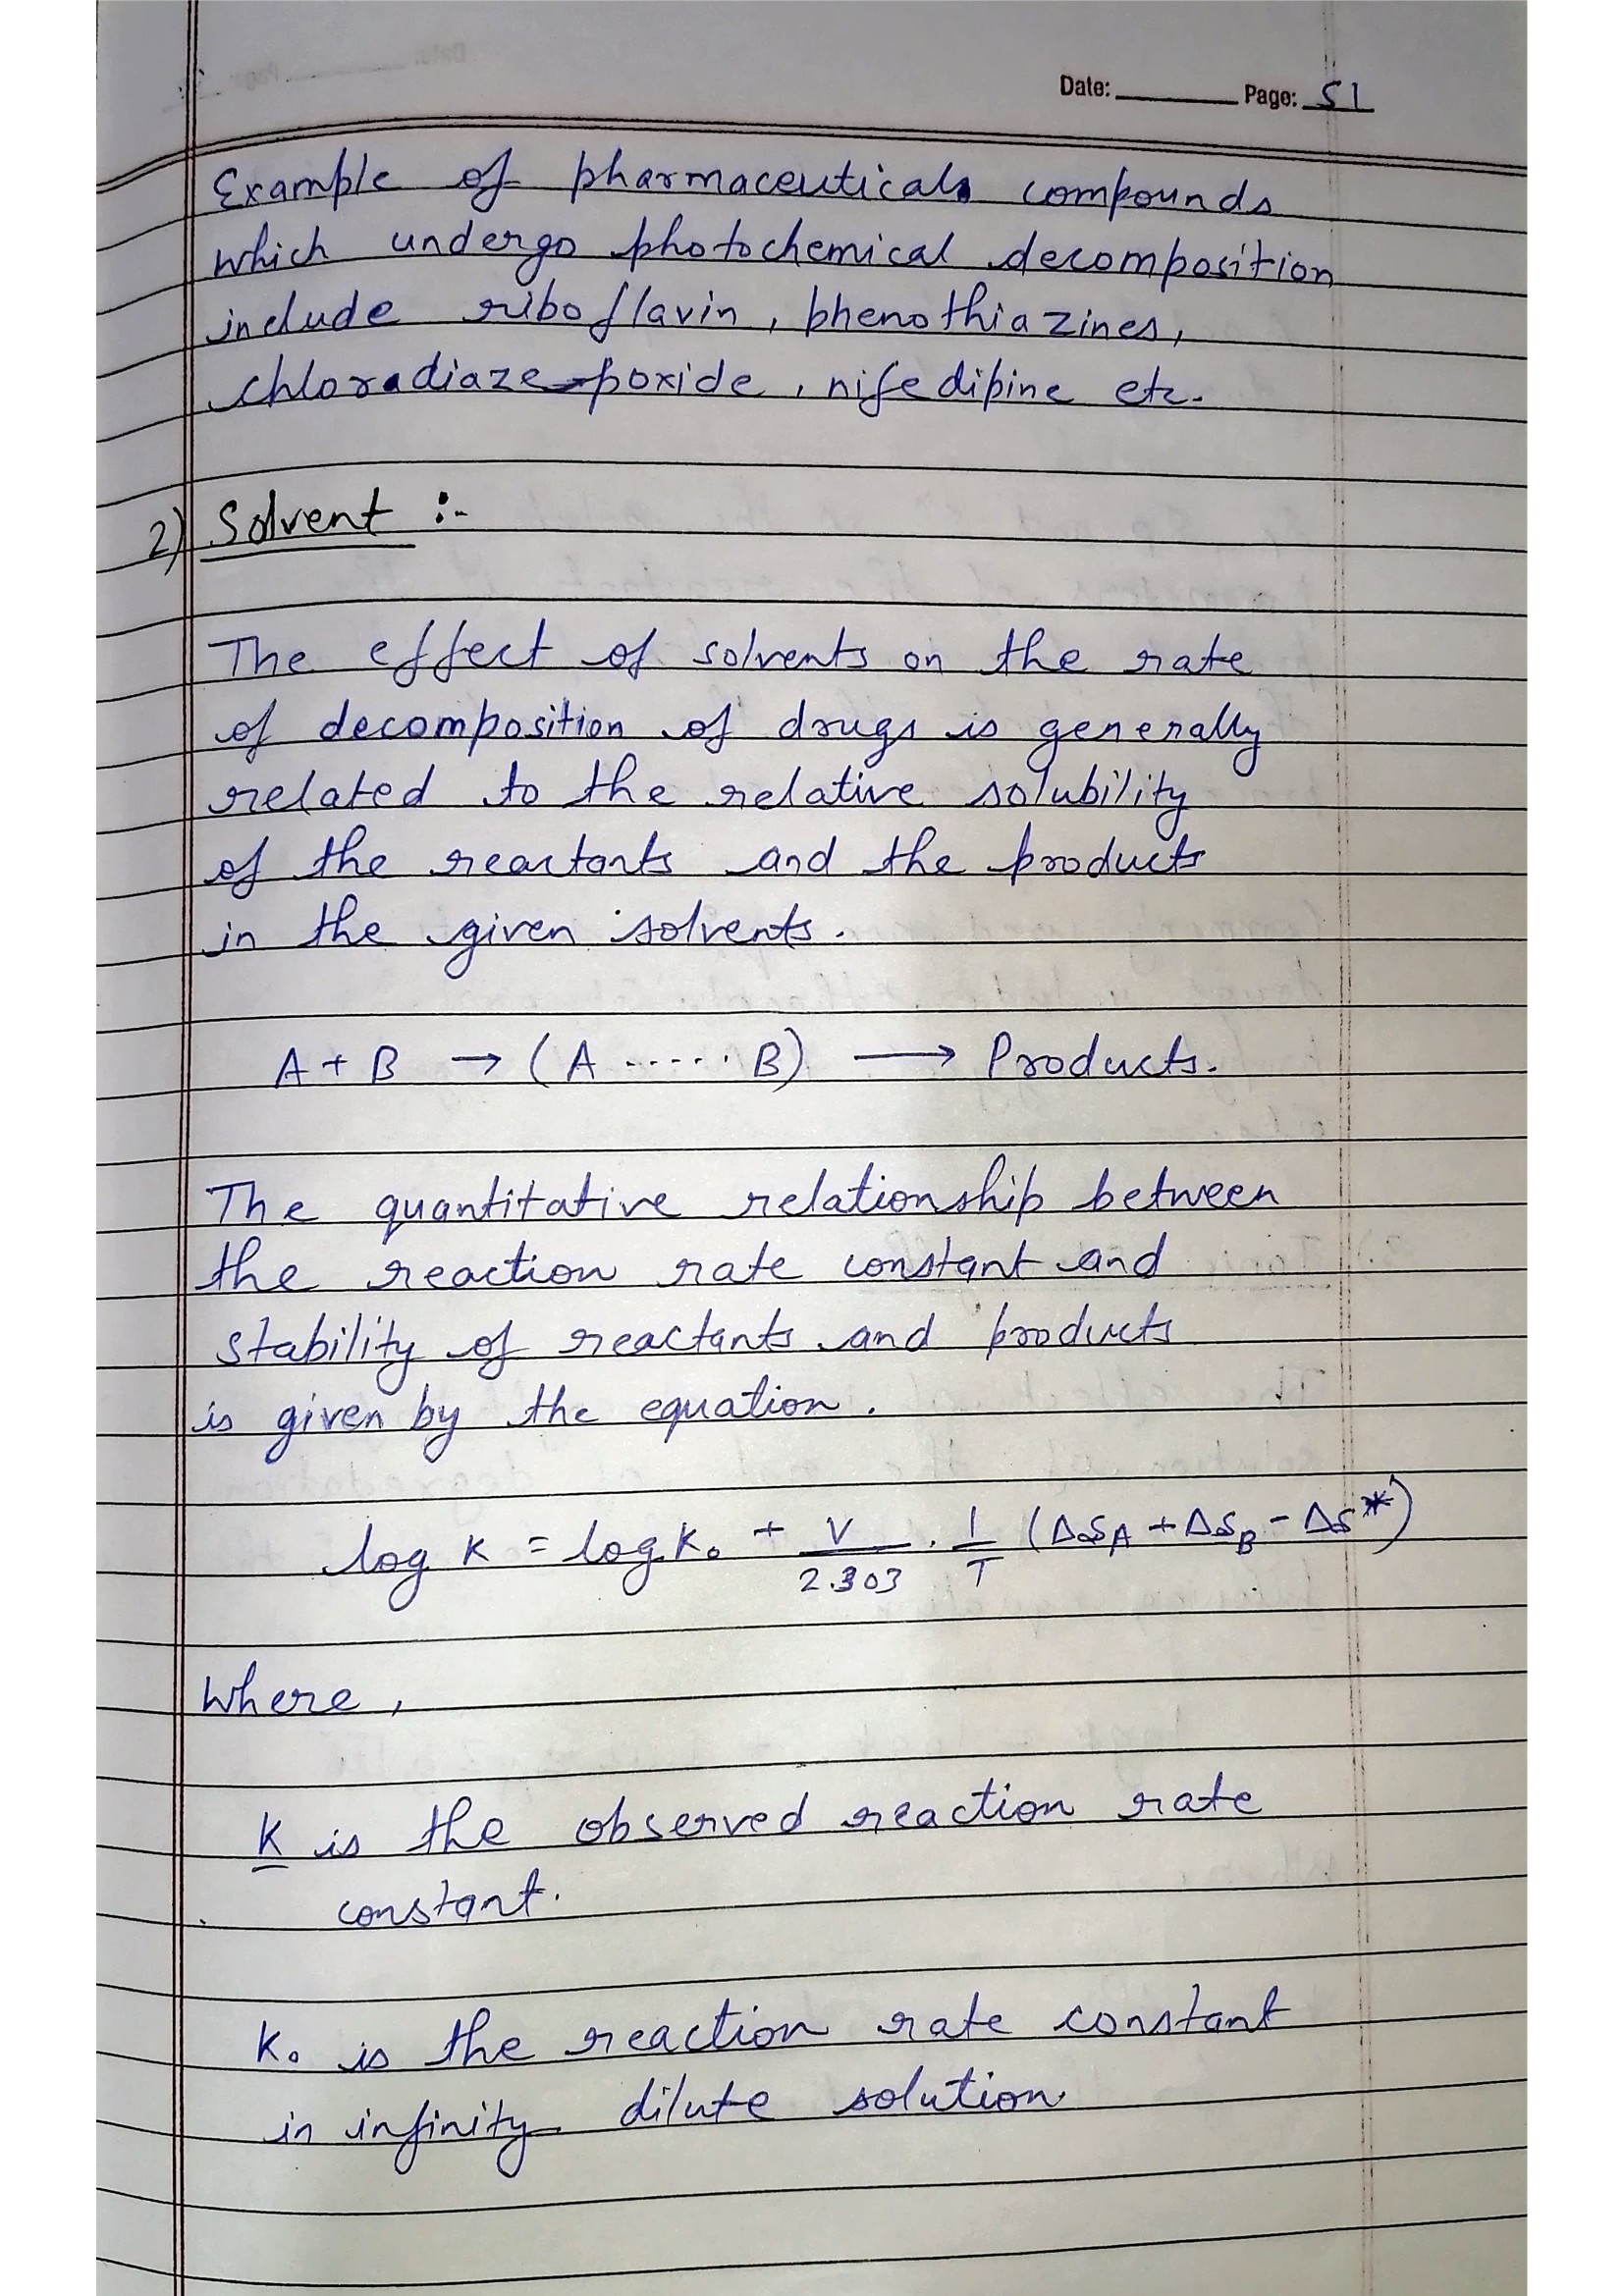 Date: Page: 51
Example of pharmaceuticals compounds
which undergo photochemical decomposition
include riboflavin, phenothiazines,
chloradiazepoxide, nifedipine etc.
2) Solvent :-
The effect of solvents on the rate
of decomposition of drugs is generally
related to the relative solubility
of the reactants and the products
in the given solvents.
A + B → (A ...... B) → Products.
The quantitative relationship between
the reaction rate constant and
stability of reactants and products
is given by the equation.
log K = log K₀ + V/2.303 . 1/T (ΔSA + ΔSB - ΔS*)
Where,
K is the observed reaction rate
constant.
K₀ is the reaction rate constant
in infinity dilute solution